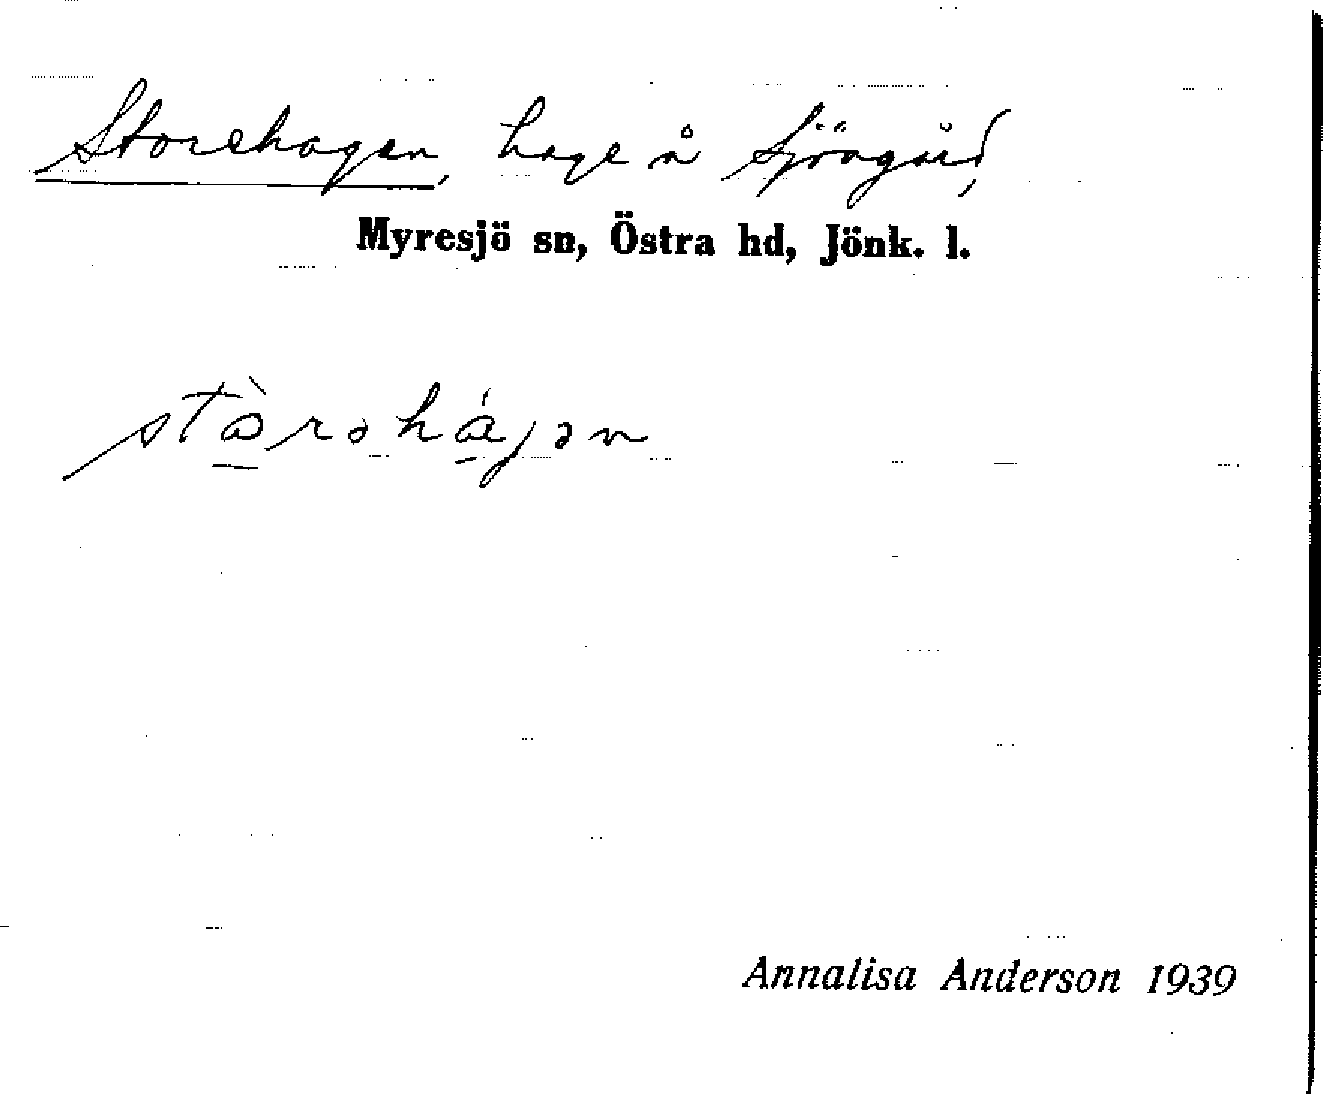 Storehagen, hage å Sjöagård,
Myresjö sn, Östra hd, Jönk. l.
stàrəhájən
Annalisa Anderson 1939